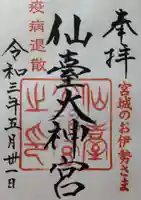 奉拝
宮城のお伊勢さま
仙臺大神宮
疫病退散
令和三年五月卅一日